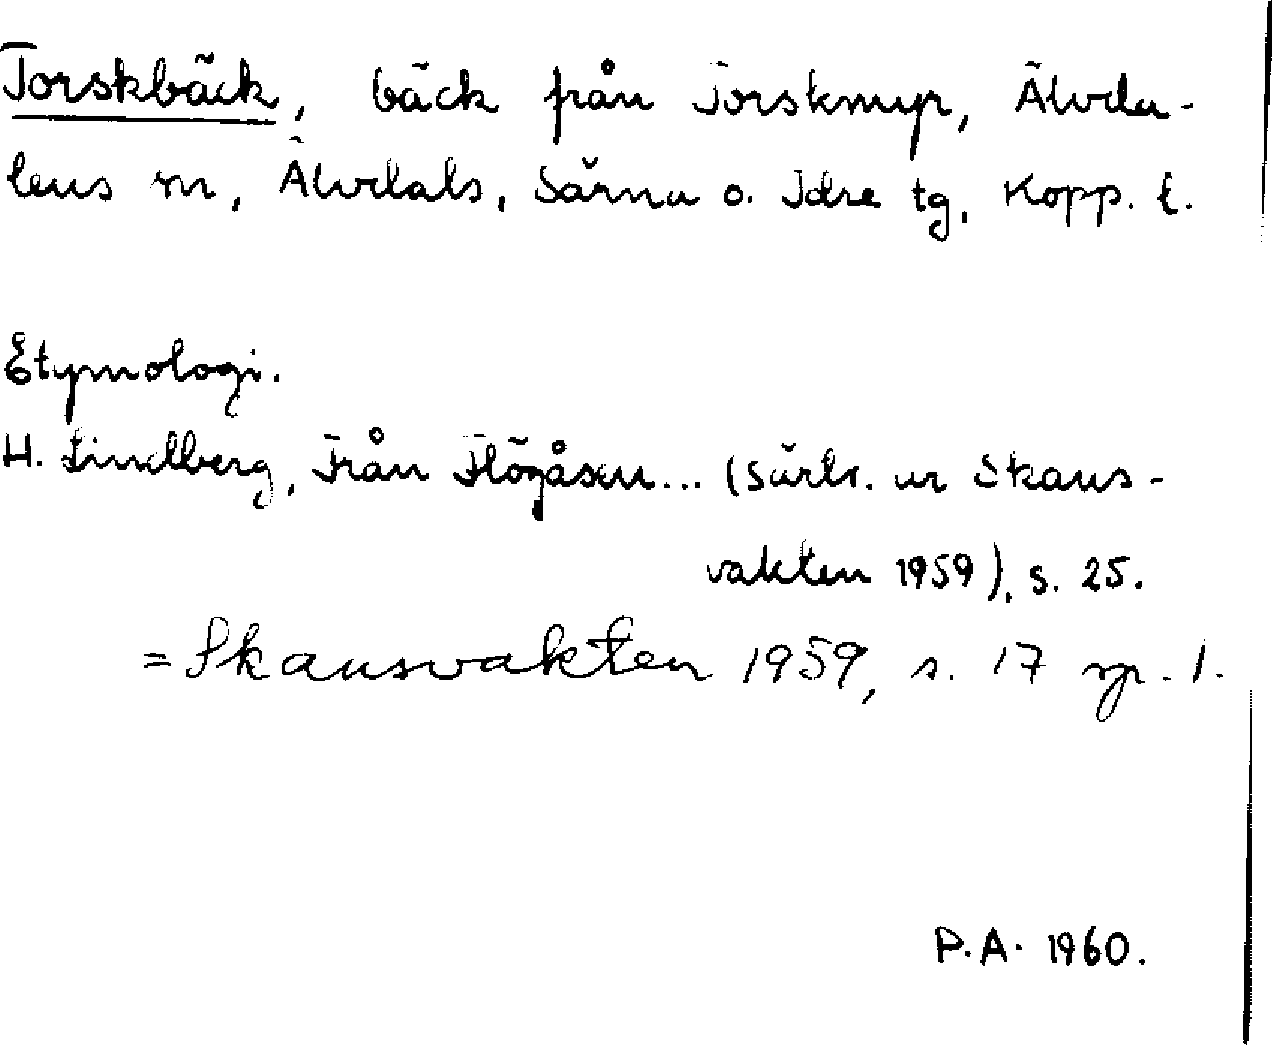 Torskbäck, bäck från Torskmyr, Älvda-
lens sn, Älvdals, Särna o. Idre tg, Kopp. l.
Etymologi.
H. Lindberg, Från Flögåsen... (Särtr. ur Skans-
vakten 1959), s. 25.
= Skansvakten 1959, s. 17 sp. 1.
P.A. 1960.